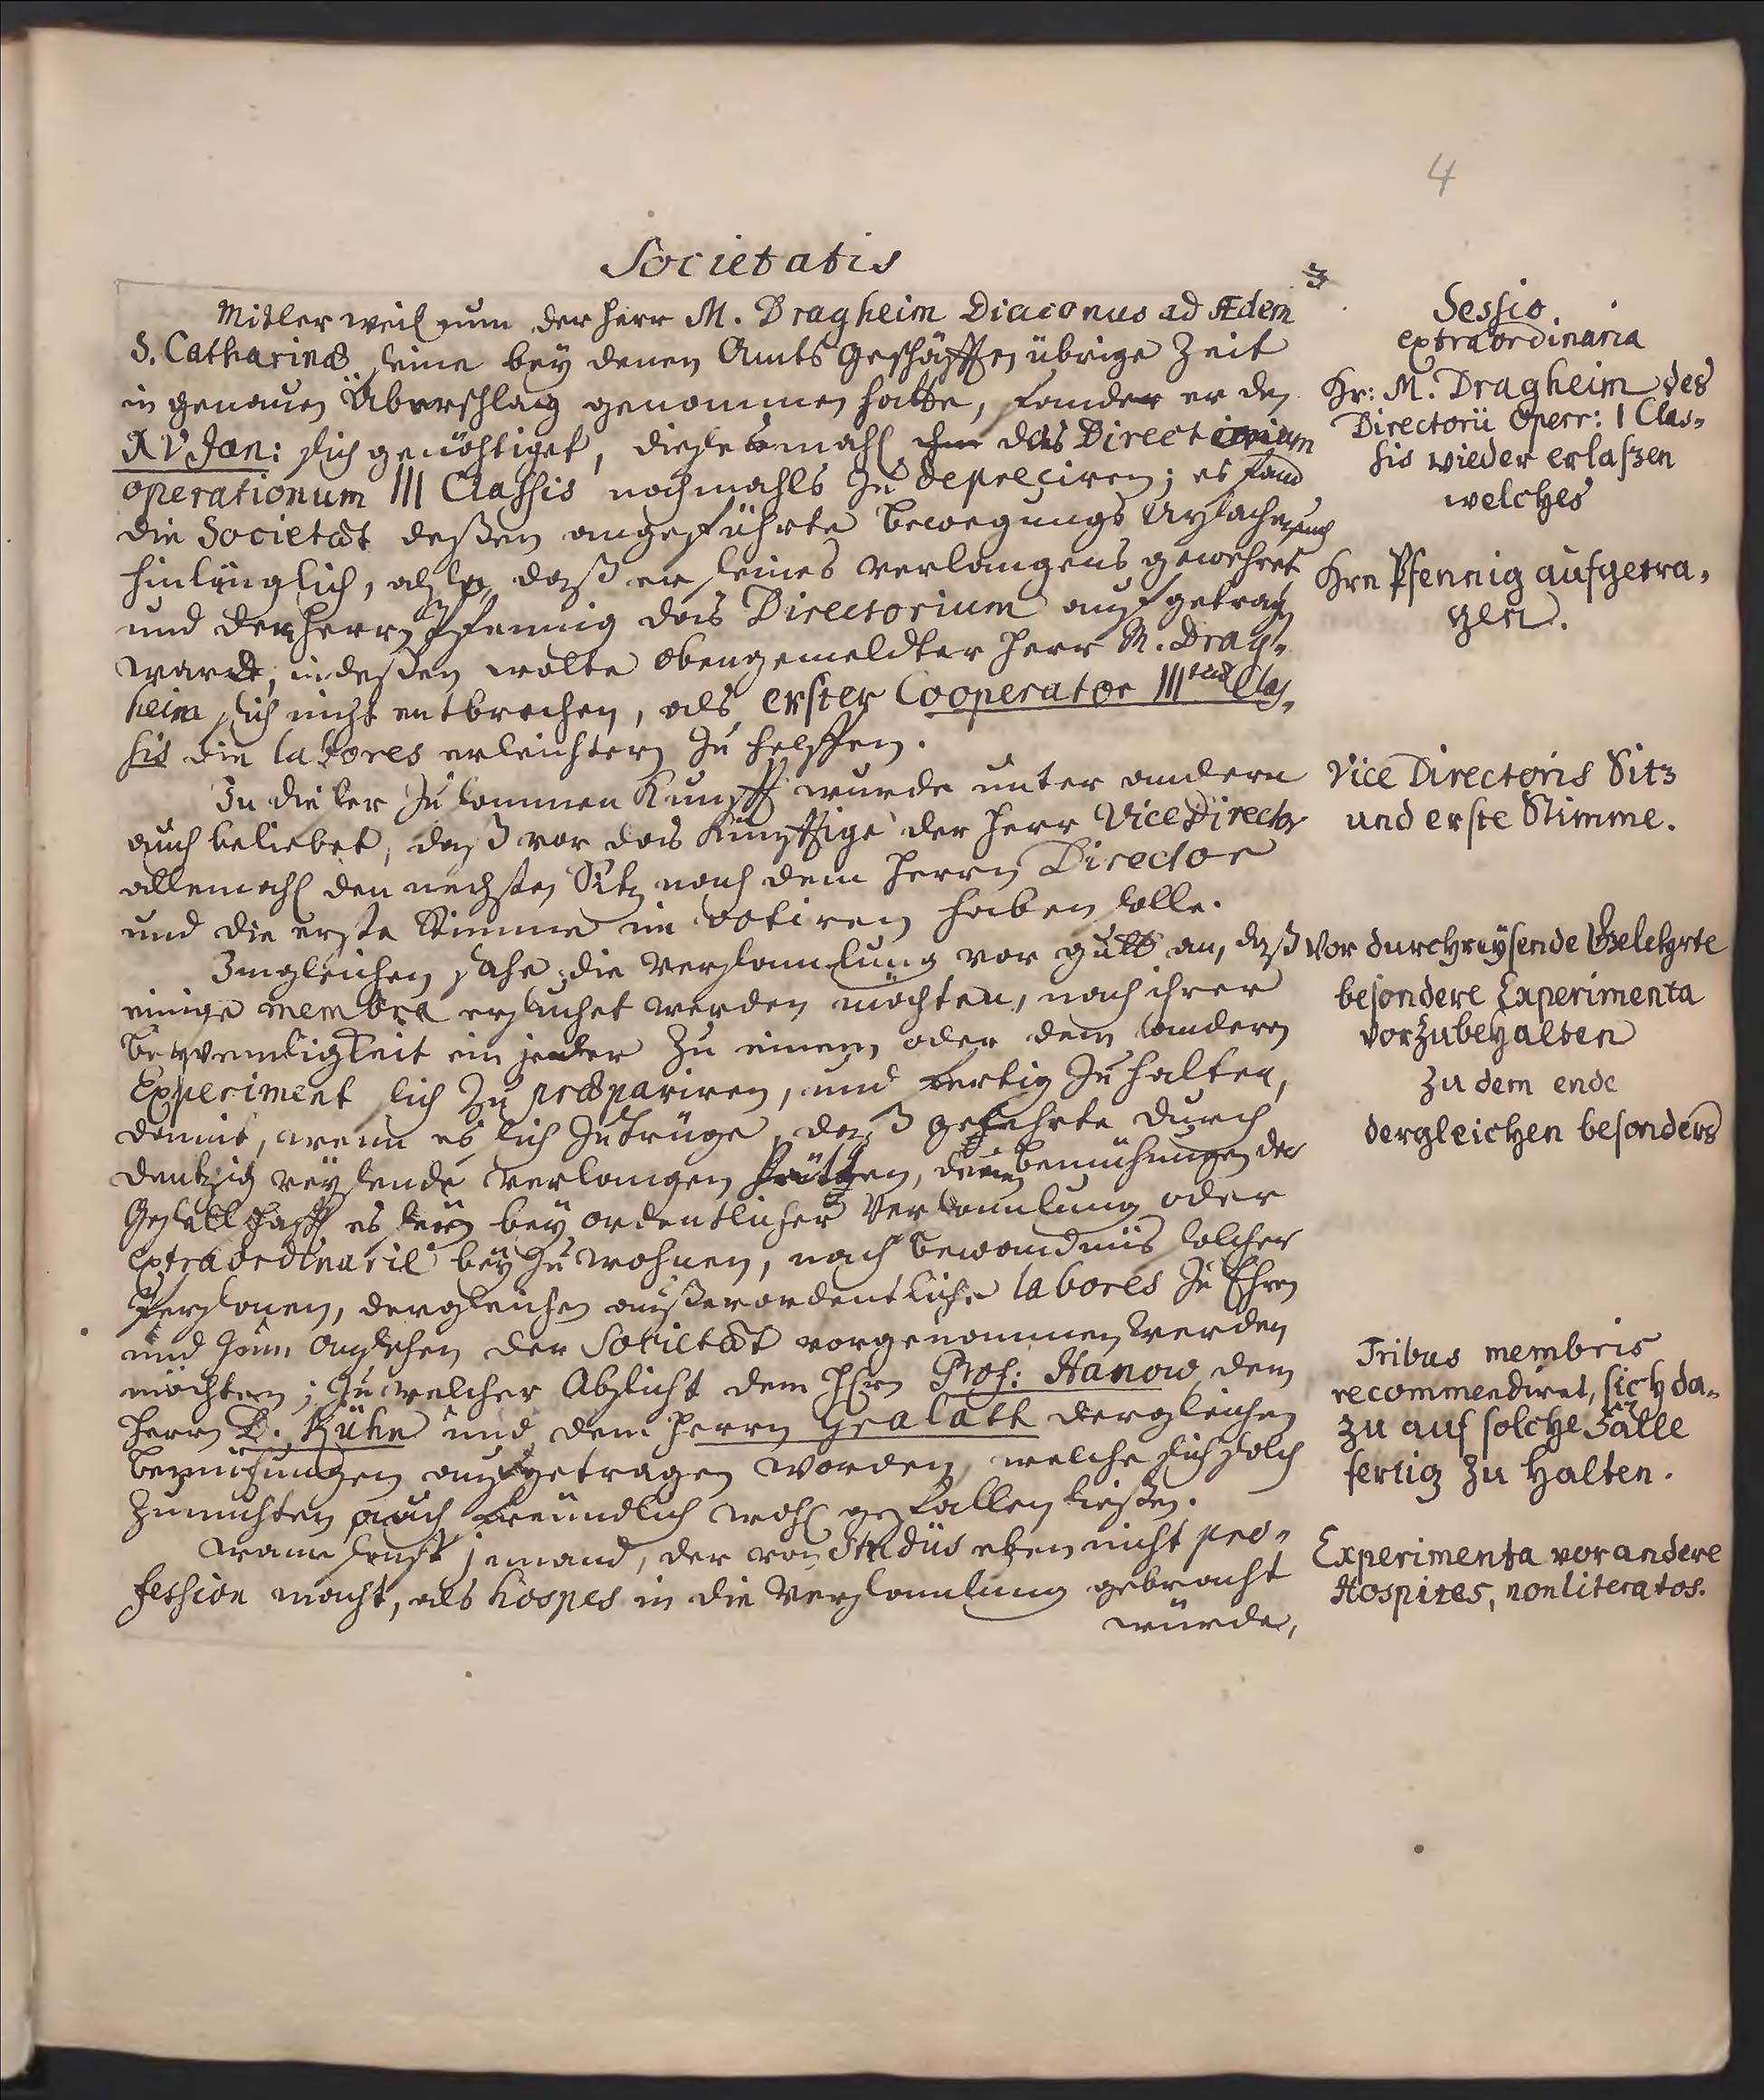 4
Societatis
3
Mitler weil nun der Herr M. Dragheim Diaconus ad Ædem
S. Catharinæ seine bey denen Amts Geschäfften übrige Zeit
in genauen Überschlag genommen hatte, fande er den
XV Jan: sich genöhtiget, diesesmahl das Directorium
operationum III Classis nochmahls zu depreciren; es fand
die Societæt deßen angeführte Bewegungs Uhrsachen auch
hinlänglich, also daß er seines Verlangens gewehret
und dem Herrn Pfennig das Directorium aufgetragen
wardt, indeßen wolte obengemeldter Herr M. Drag-
heim sich nicht entbrechen, als erster Cooperator IIItiæ Clas-
sis die labores erleichtern zu helffen.
In dieser Zusammen Kunfft wurde unter andern
auch beliebet, daß vor das Künfftige der Herr Vice Director
allemahl den nechsten Sitz nach dem Herrn Director
und die erste Stimme im votiren haben solle.
Imgleichen sahe die Versamlung vor gutt an, daß
einige membra ersuchet werden möchten, nach ihrer
Beqvemligkeit ein jeder zu einem oder dem andern
Experiment sich zu præpariren, und fertig zu halten,
damit, wenn es sich zutrüge, daß gelehrte durch
Dantzig reysende Verlangen hätten, denen Bemühungen der
Gesellschafft es sey bey ordentlicher Versamlung oder
extraordinarie beyzuwohnen, nach Bewandniis solcher
Persohnen, dergleichen außerordentliche labores zu Ehren
und zum Ansehen der Societæt vorgenommen werden
möchten; zu welcher Absicht dem Hern Prof: Hanow, dem
Herrn D. Kühn und dem Herrn Gralath dergleichen
Bemühungen aufgetragen worden, welche sich solch
Zumuhten auch freundlich wohl gefallen ließen.
Wann sonst jemand, der von Studiis eben nicht pro-
fession macht, als hospes in die Versamlung gebracht
würde,
Sessio
extraordinaria
Hr: M. Dragheim des
Directorii Operr: I Clas-
sis wieder erlaßen
welches
Hrn Pfennig aufgetra-
gen.
Vice Directoris Sitz
und erste Stimme.
Vor durchreysende Gelehrte
besondere Experimenta
vorzubehalten
zu dem ende
dergleichen besonders
Tribus membris
recommendiret, sich da-
zu auf solche Fälle
fertig zu halten.
Experimenta vor andere
Hospites, non literatos.